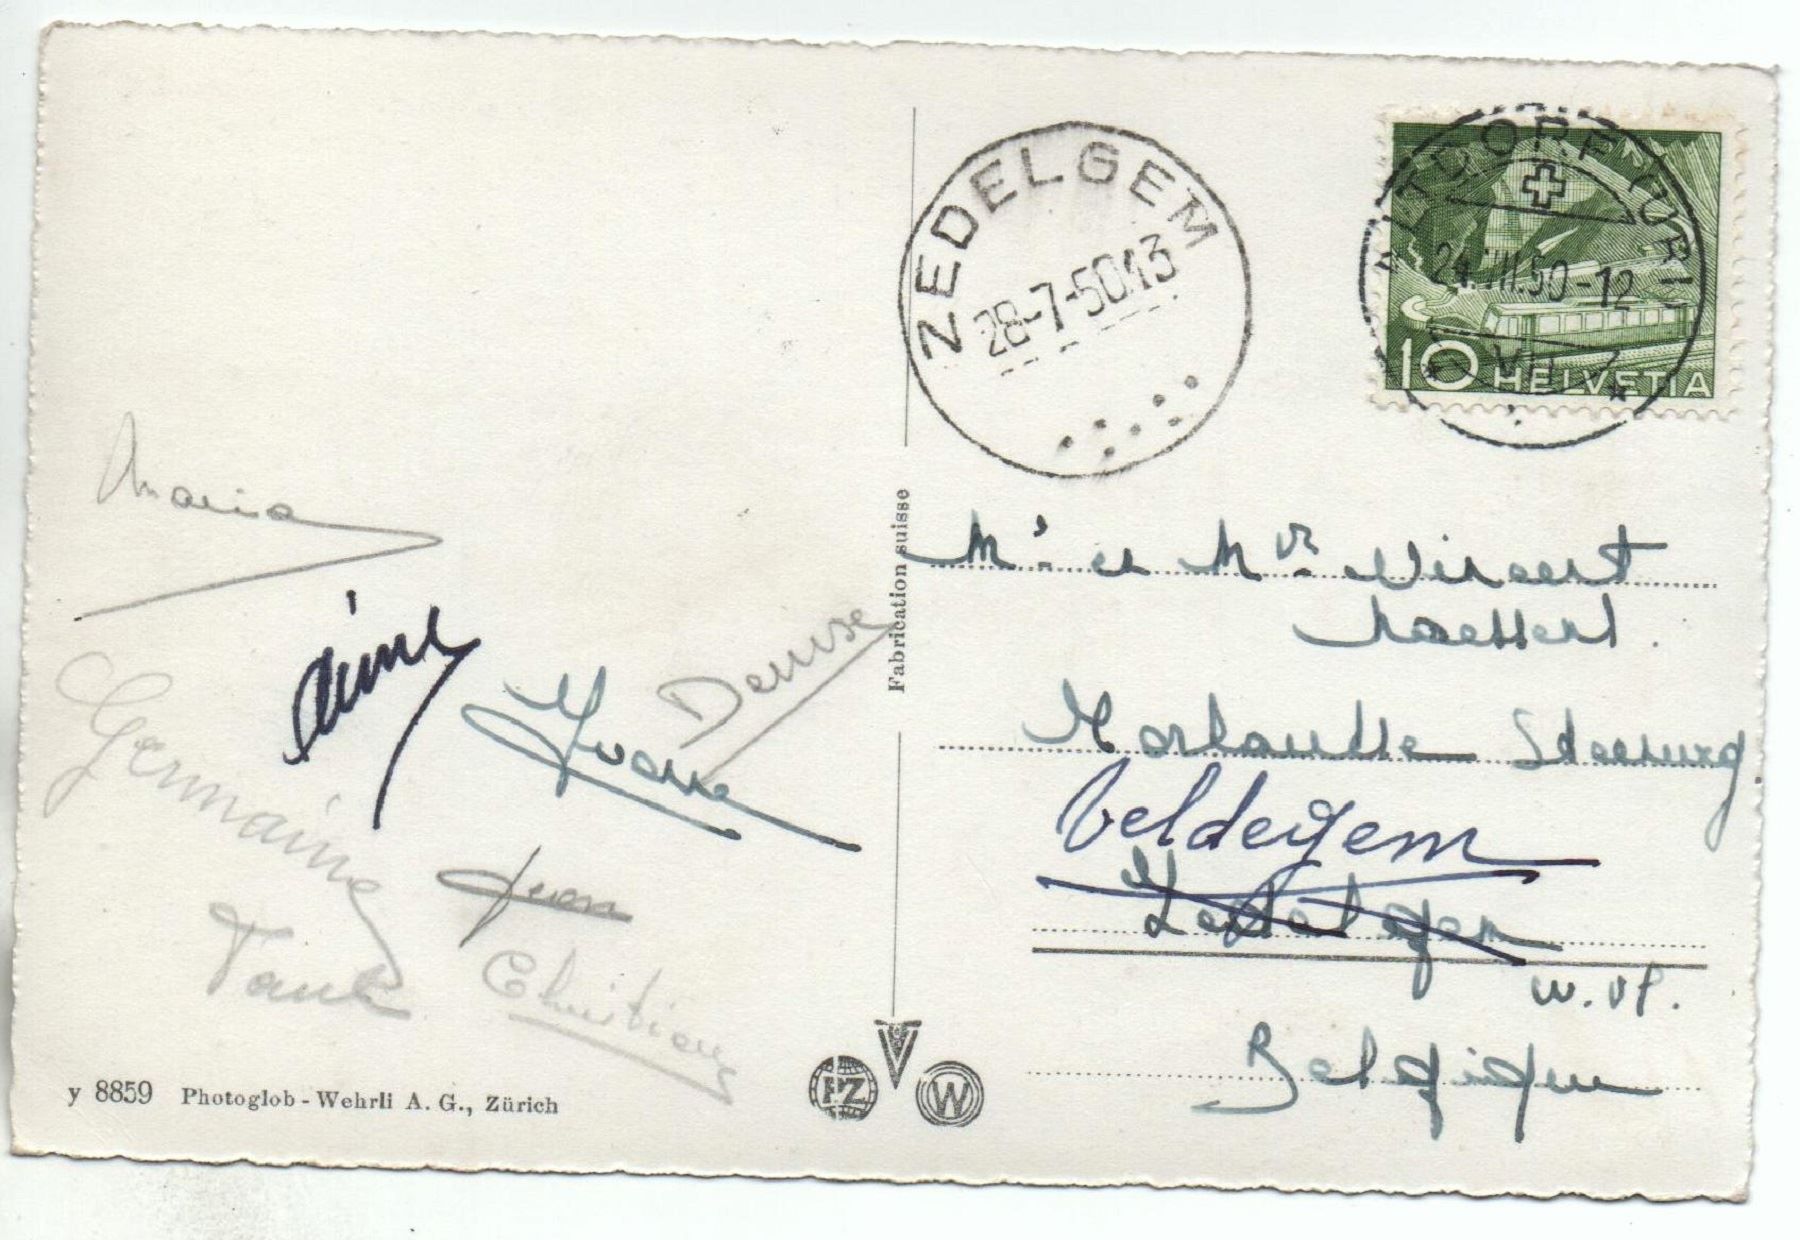 ZEDELGEM
28-7-50 13
ALTDORF (URI)
24.VII.50-12
VII
10 HELVETIA
Maria
Aimé
Denise
Yvonne
Germaine
Jean
Paul
Christiane
Fabrication suisse
Mr. et Mve. Vincent
Veldegem
Zedelgem
W. Vl.
Belgique
y 8859 Photoglob-Wehrli A. G., Zürich
PZ
W